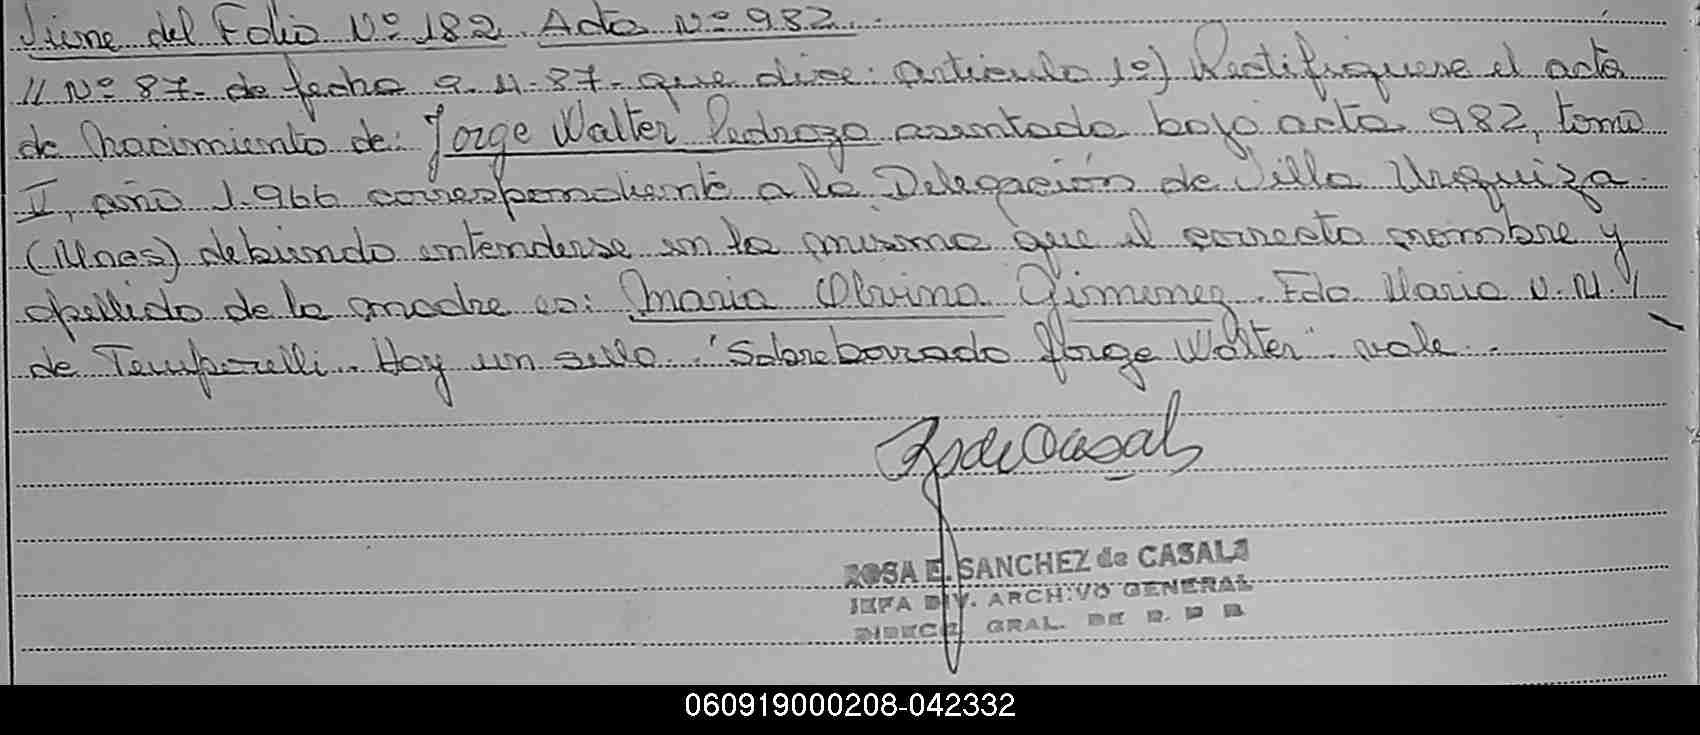 Viene del Folio Nº 182. Acta Nº 982.
// Nº 87- de fecha 9-4-87- que dice: artículo 1º) Rectifíquese el acta
de Nacimiento de: Jorge Walter Pedrozo asentada bajo acta 982, tomo
II, año 1.966 correspondiente a la Delegación de Villa Urquiza
(Unas) debiendo entenderse en la misma que el correcto nombre y
apellido de la madre es: Maria Olvina Gimenez. Fdo. Maria
de Temporelli. Hay un sello. "Sobreborrado Jorge Walter". vale.
ROSA E. SANCHEZ de CASALS
JEFA DIV. ARCHIVO GENERAL
DIRECC. GRAL. DE
060919000208-042332